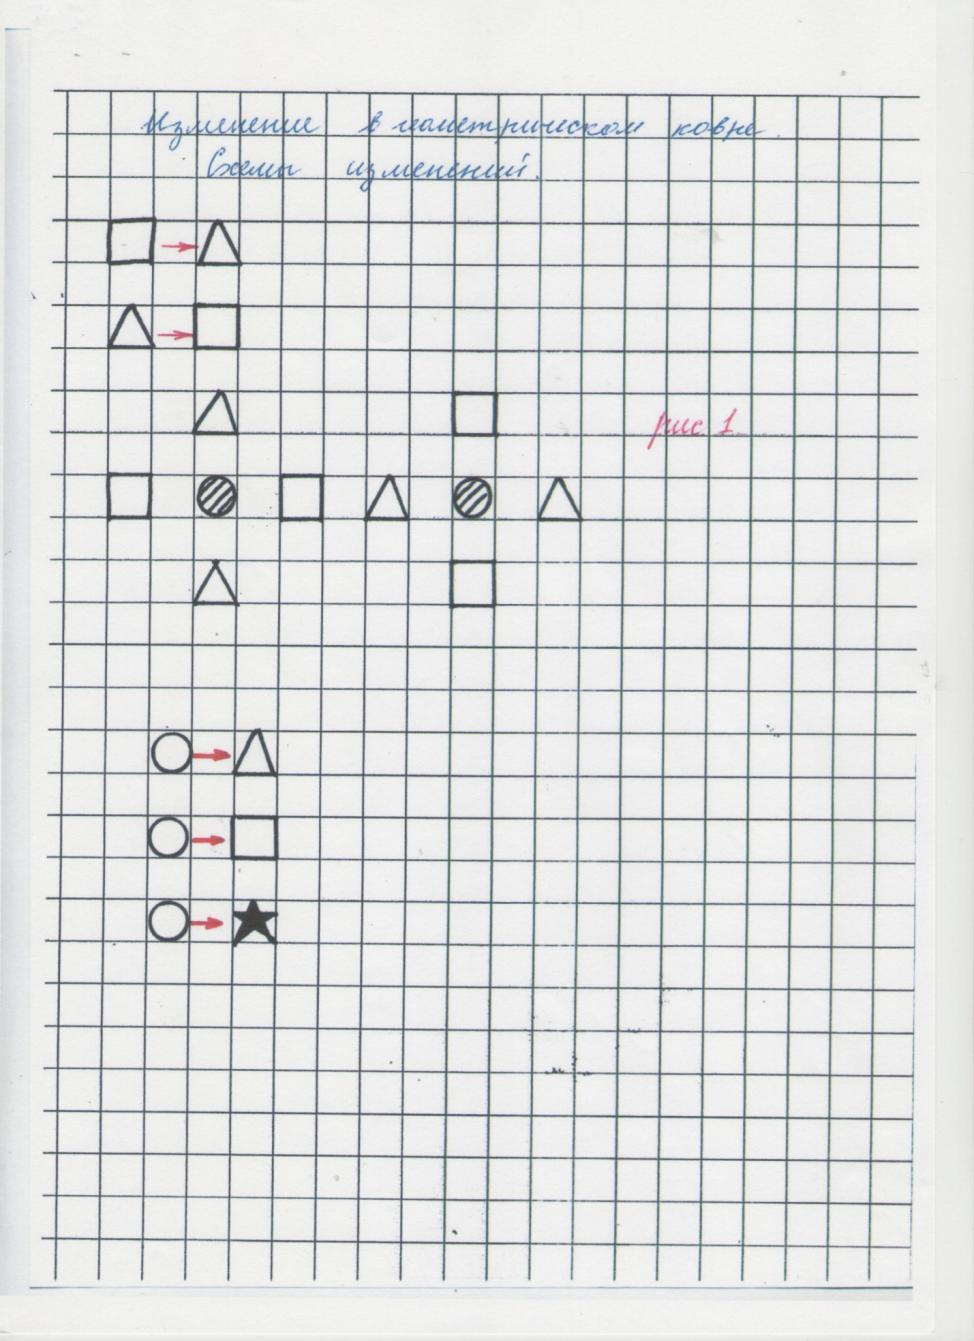 Изменение в геометрическом ковре.
Схемы изменений.
рис 1